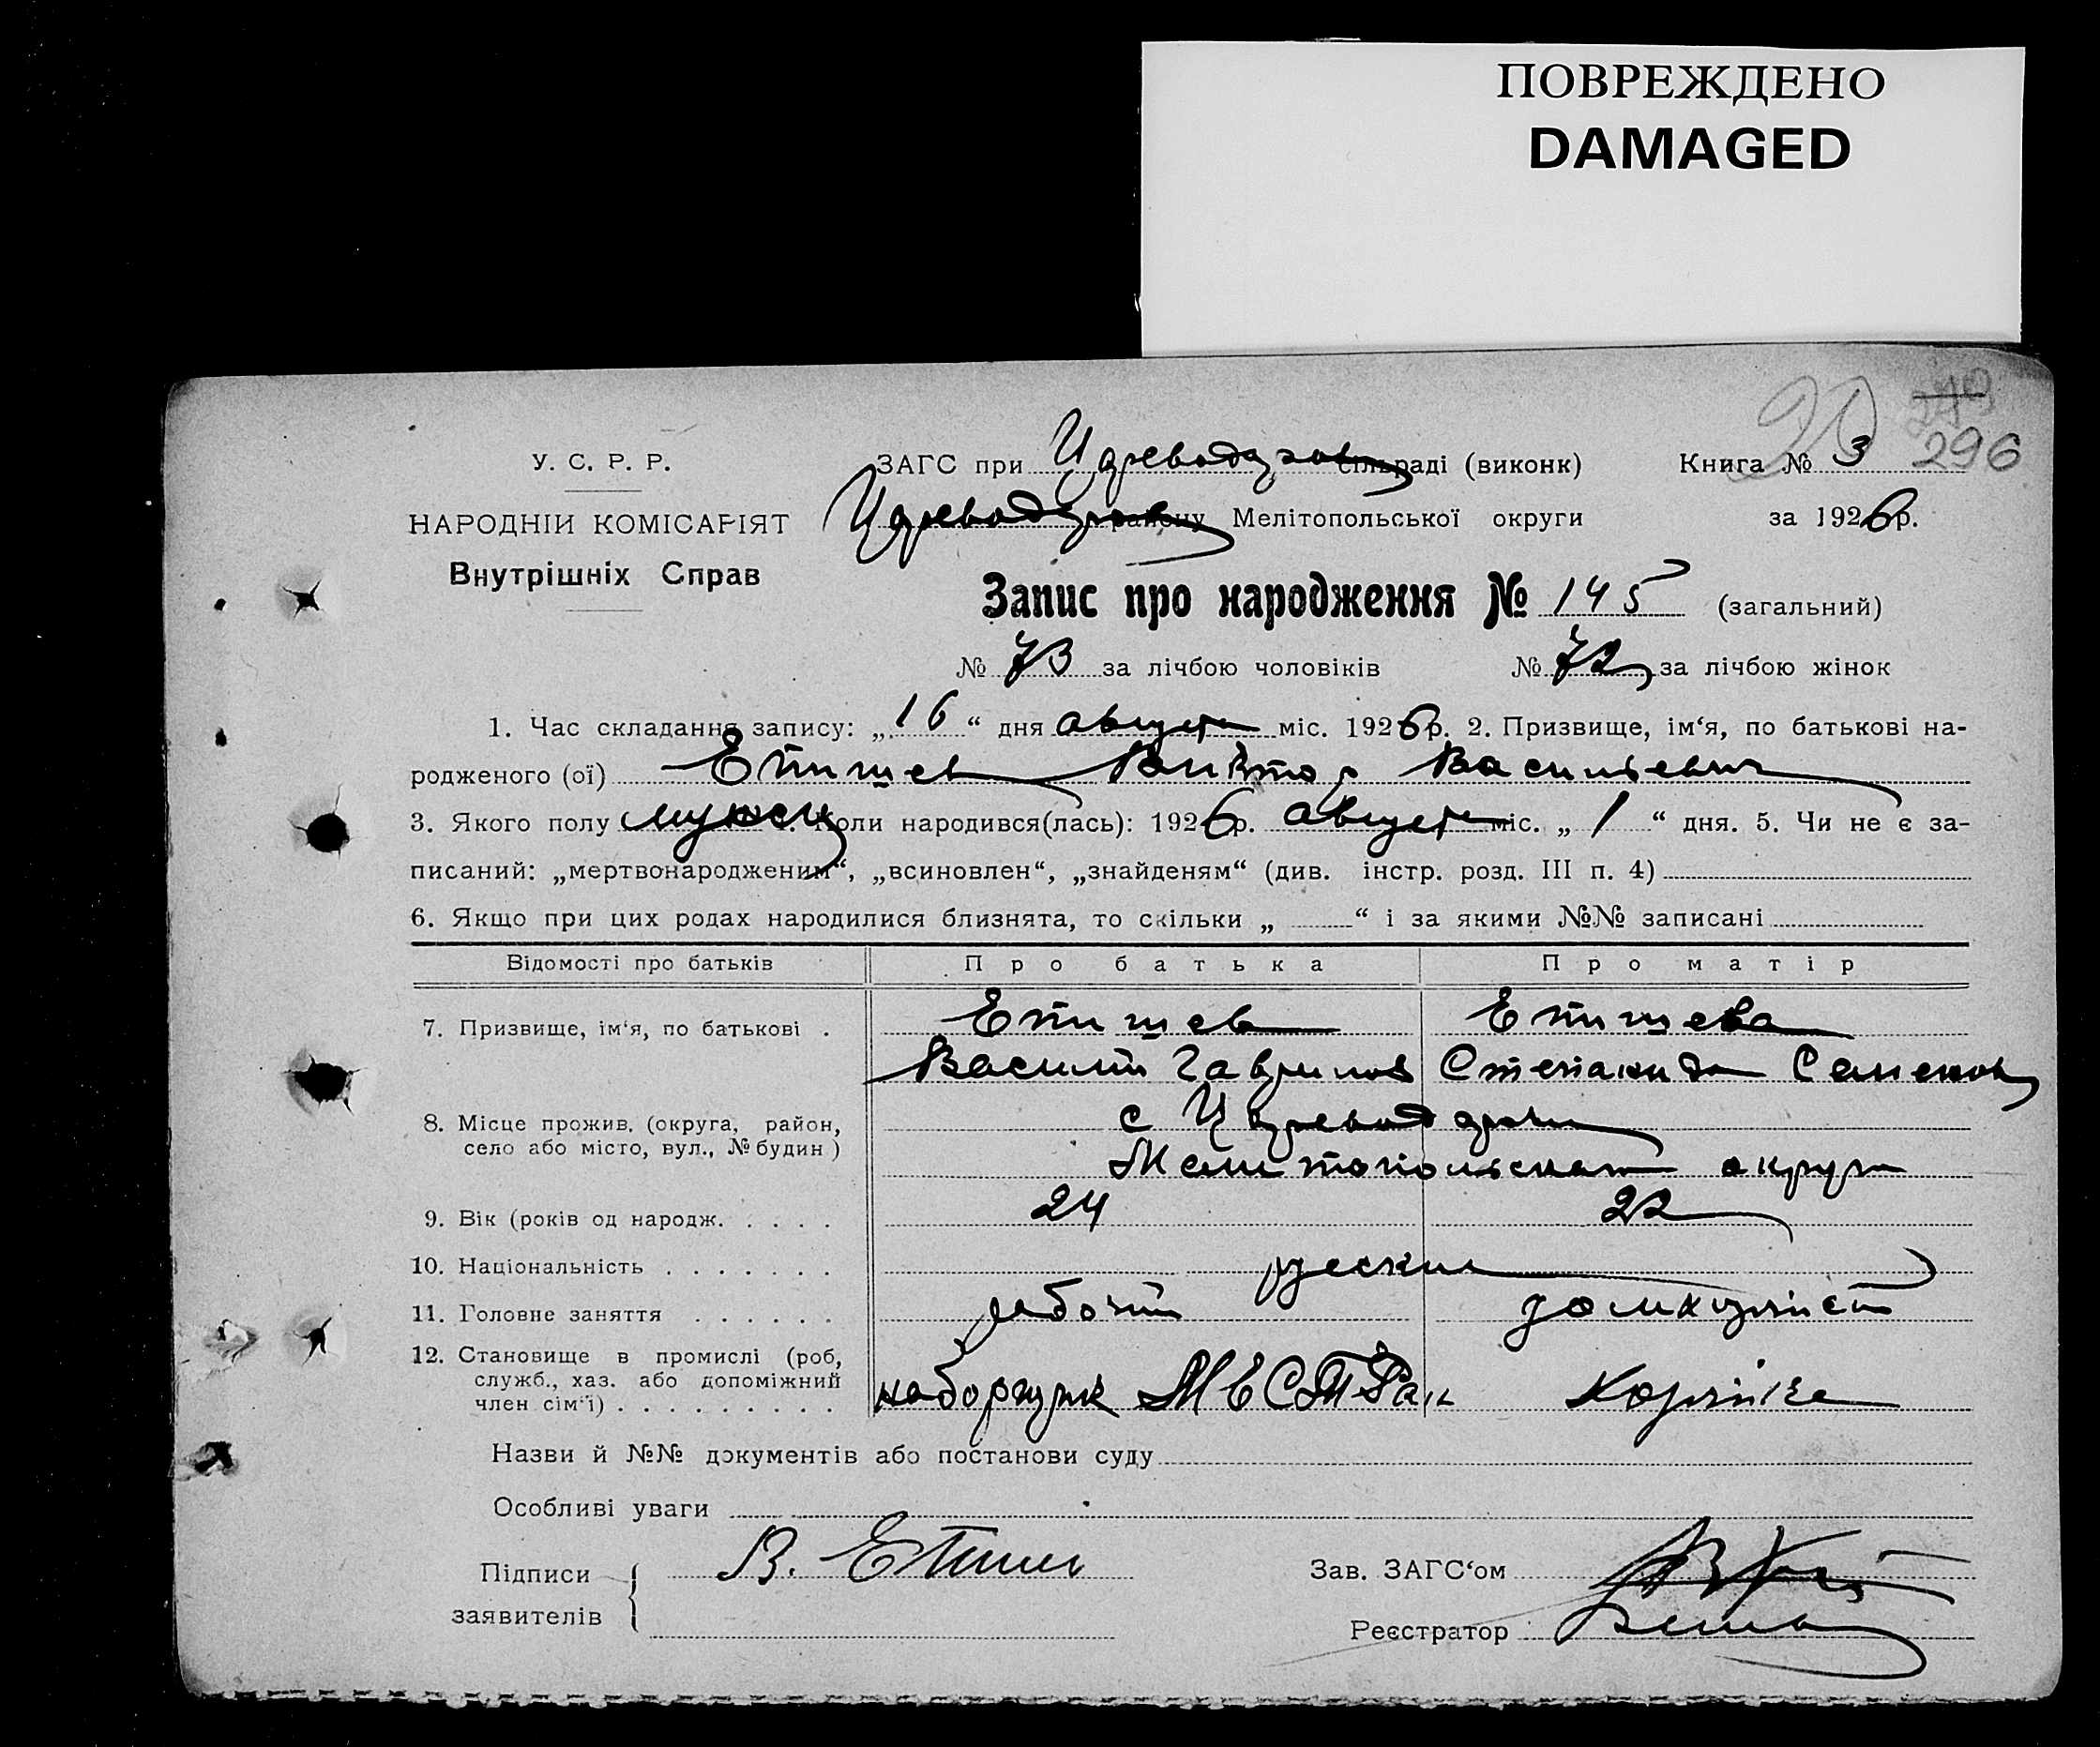 ПОВРЕЖДЕНО
DAMAGED
296
У. С. Р. Р.
ЗАГС при Цареводаров сільраді (виконк) Книга № 3
НАРОДНІЙ КОМІСАРІЯТ
Цареводаров району Мелітопольської округи за 1926 р.
Внутрішніх Справ
Запис про народження № 145 (загальний)
№ 73 за лічбою чоловіків № 72 за лічбою жінок
1. Час складання запису: „16“ дня августа міс. 1926 р. 2. Призвище, ім‘я, по батькові на-
родженого (ої) Епишев Виктор Васильевич
3. Якого полу мужск 4. Коли народився(лась): 1926 р. августа міс. „1“ дня. 5. Чи не є за-
писаний: „мертвонародженим“, „всиновлен“, „знайденям“ (див. інстр. розд. III п. 4)
6. Якщо при цих родах народилися близнята, то скільки „ “ і за якими №№ записані
Відомості про батьків Про батька Про матір
7. Призвище, ім‘я, по батькові . Епишев Епишева
Василий Гаврилов Степанида Семенов
8. Місце прожив. (округа, район, с
село або місто, вул., № будин) Мелитопольской округи
9. Вік (років од народж. . . . . 24 22
10. Національність . . . . . . . русские
11. Головне заняття . . . . . . рабочий домхозяйст
12. Становище в промислі (роб,
служб., хаз. або допоміжний
член сім‘ї) . . . . . . . . . наборщик
Назви й №№ документів або постанови суду
Особливі уваги
Підписи В.
заявителів
Зав. ЗАГС‘ом
Реєстратор